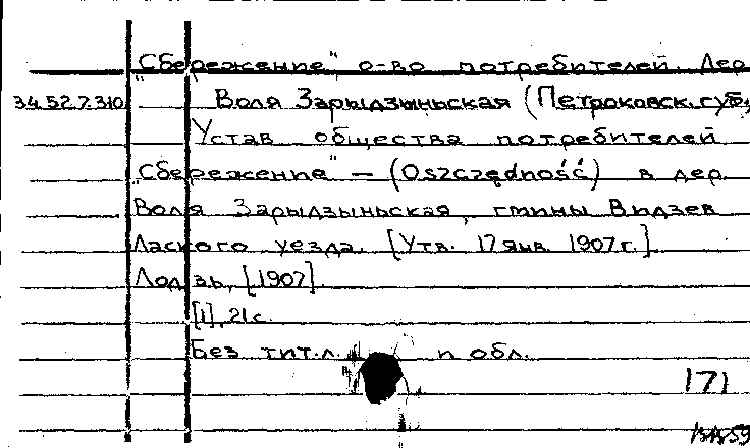 "Сбережение" о-во потребителей. Дер.
34.52.7.310 Воля Зарыдзыньская (Петроковск. губ.
Устав общества потребителей
"Сбережение" — (Oszczędność) в дер.
Воля Зарыдзыньская, гмины Видзев
Лаского уезда. [Утв. 17 янв. 1907 г.].
Лодзь, [1907].
[1], 21 с.
Без тит. л. и обл.
171